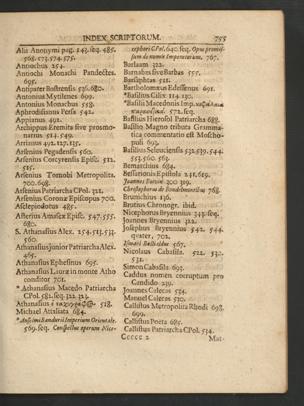 INDEX SCRIPTORUM. 755
Alia Anonymi pag. 143. seq. 485.
568. 573. 574. 575.
Antiochus 254.
Antiochi Monachi Pandectes.
695.
Antipater Bostrensis 536. 680.
Antonius Mytileneus 699.
Antonius Monachus 558.
Aphrodisiensis Petrus 542.
Appianus 492.
Archippus Eremita sive prosmonarius
512. 549.
Arrianus 492. 127. 135.
Arsenius Pegudensis 560.
Arsenius Corcyrensis Episc. 512.
535.
Arsenius Tornobi Metropolita.
700. 698.
Arsenius Patriarcha CPol. 321.
Arsenius Coronæ Episcopus 700.
Asclepiodotus 485.
Asterius Amaseæ Episc. 547. 555.
680.
S. Athanasius Alex. 254. 513. 531.
560.
Athanasius junior Patriarcha Alex.
465.
Athanasius Ephesinus 695.
Athanasius Lauræ in monte Atho
conditor 701.
* Athanasius Macedo Patriarcha
CPol. 581. seq. 322. 323.
Athanasius 518.
Michael Attaliata 684.
* Anselmi Banduri Imperium Orientale.
569. seq. Conspectus operum Nicephori
CPol. 640. seq. Opus promissum
de nomis Imperatorum. 767.
Barlaam 322.
Barnabas sive Barbas 555.
Barsaphius 521.
Bartholomæus Edessenus 691.
* Basilius Cilix 114. 130.
* Basilii Macedonis Imp. κεφάλαια
παραινετικά. 572. seq.
Basilius Hierosol Patriarcha 688.
Basilio Magno tributa Grammatica
commentatio est Moschopuli
693.
Basilius Seleuciensis 532. 539. 544.
553. 560. 563.
Bemarchius 684.
Bessarionis Epistola 251. 619.
Joannes Boivin 300 319.
Christophorus de Bondelmontibus 768.
Brumchius 136.
Brutus Chronogr. ibid.
Nicephorus Bryennius 343. seq.
Joannes Bryennius 322.
Josephus Bryennius 542. 544.
quater, 702.
Ismaël Bullialdus 567.
Nicolaus Cabasila. 522. 530.
531.
Simon Cabasila 693.
Cadditus nomen corruptum pro
Candido 239.
Joannes Calecas 584.
Manuel Calecas 530.
Callistus Metropolita Rhodi 698.
699.
Callistus Poeta 685.
Callistus Patriarcha CPol. 534.
Ccccc 2 Mat-